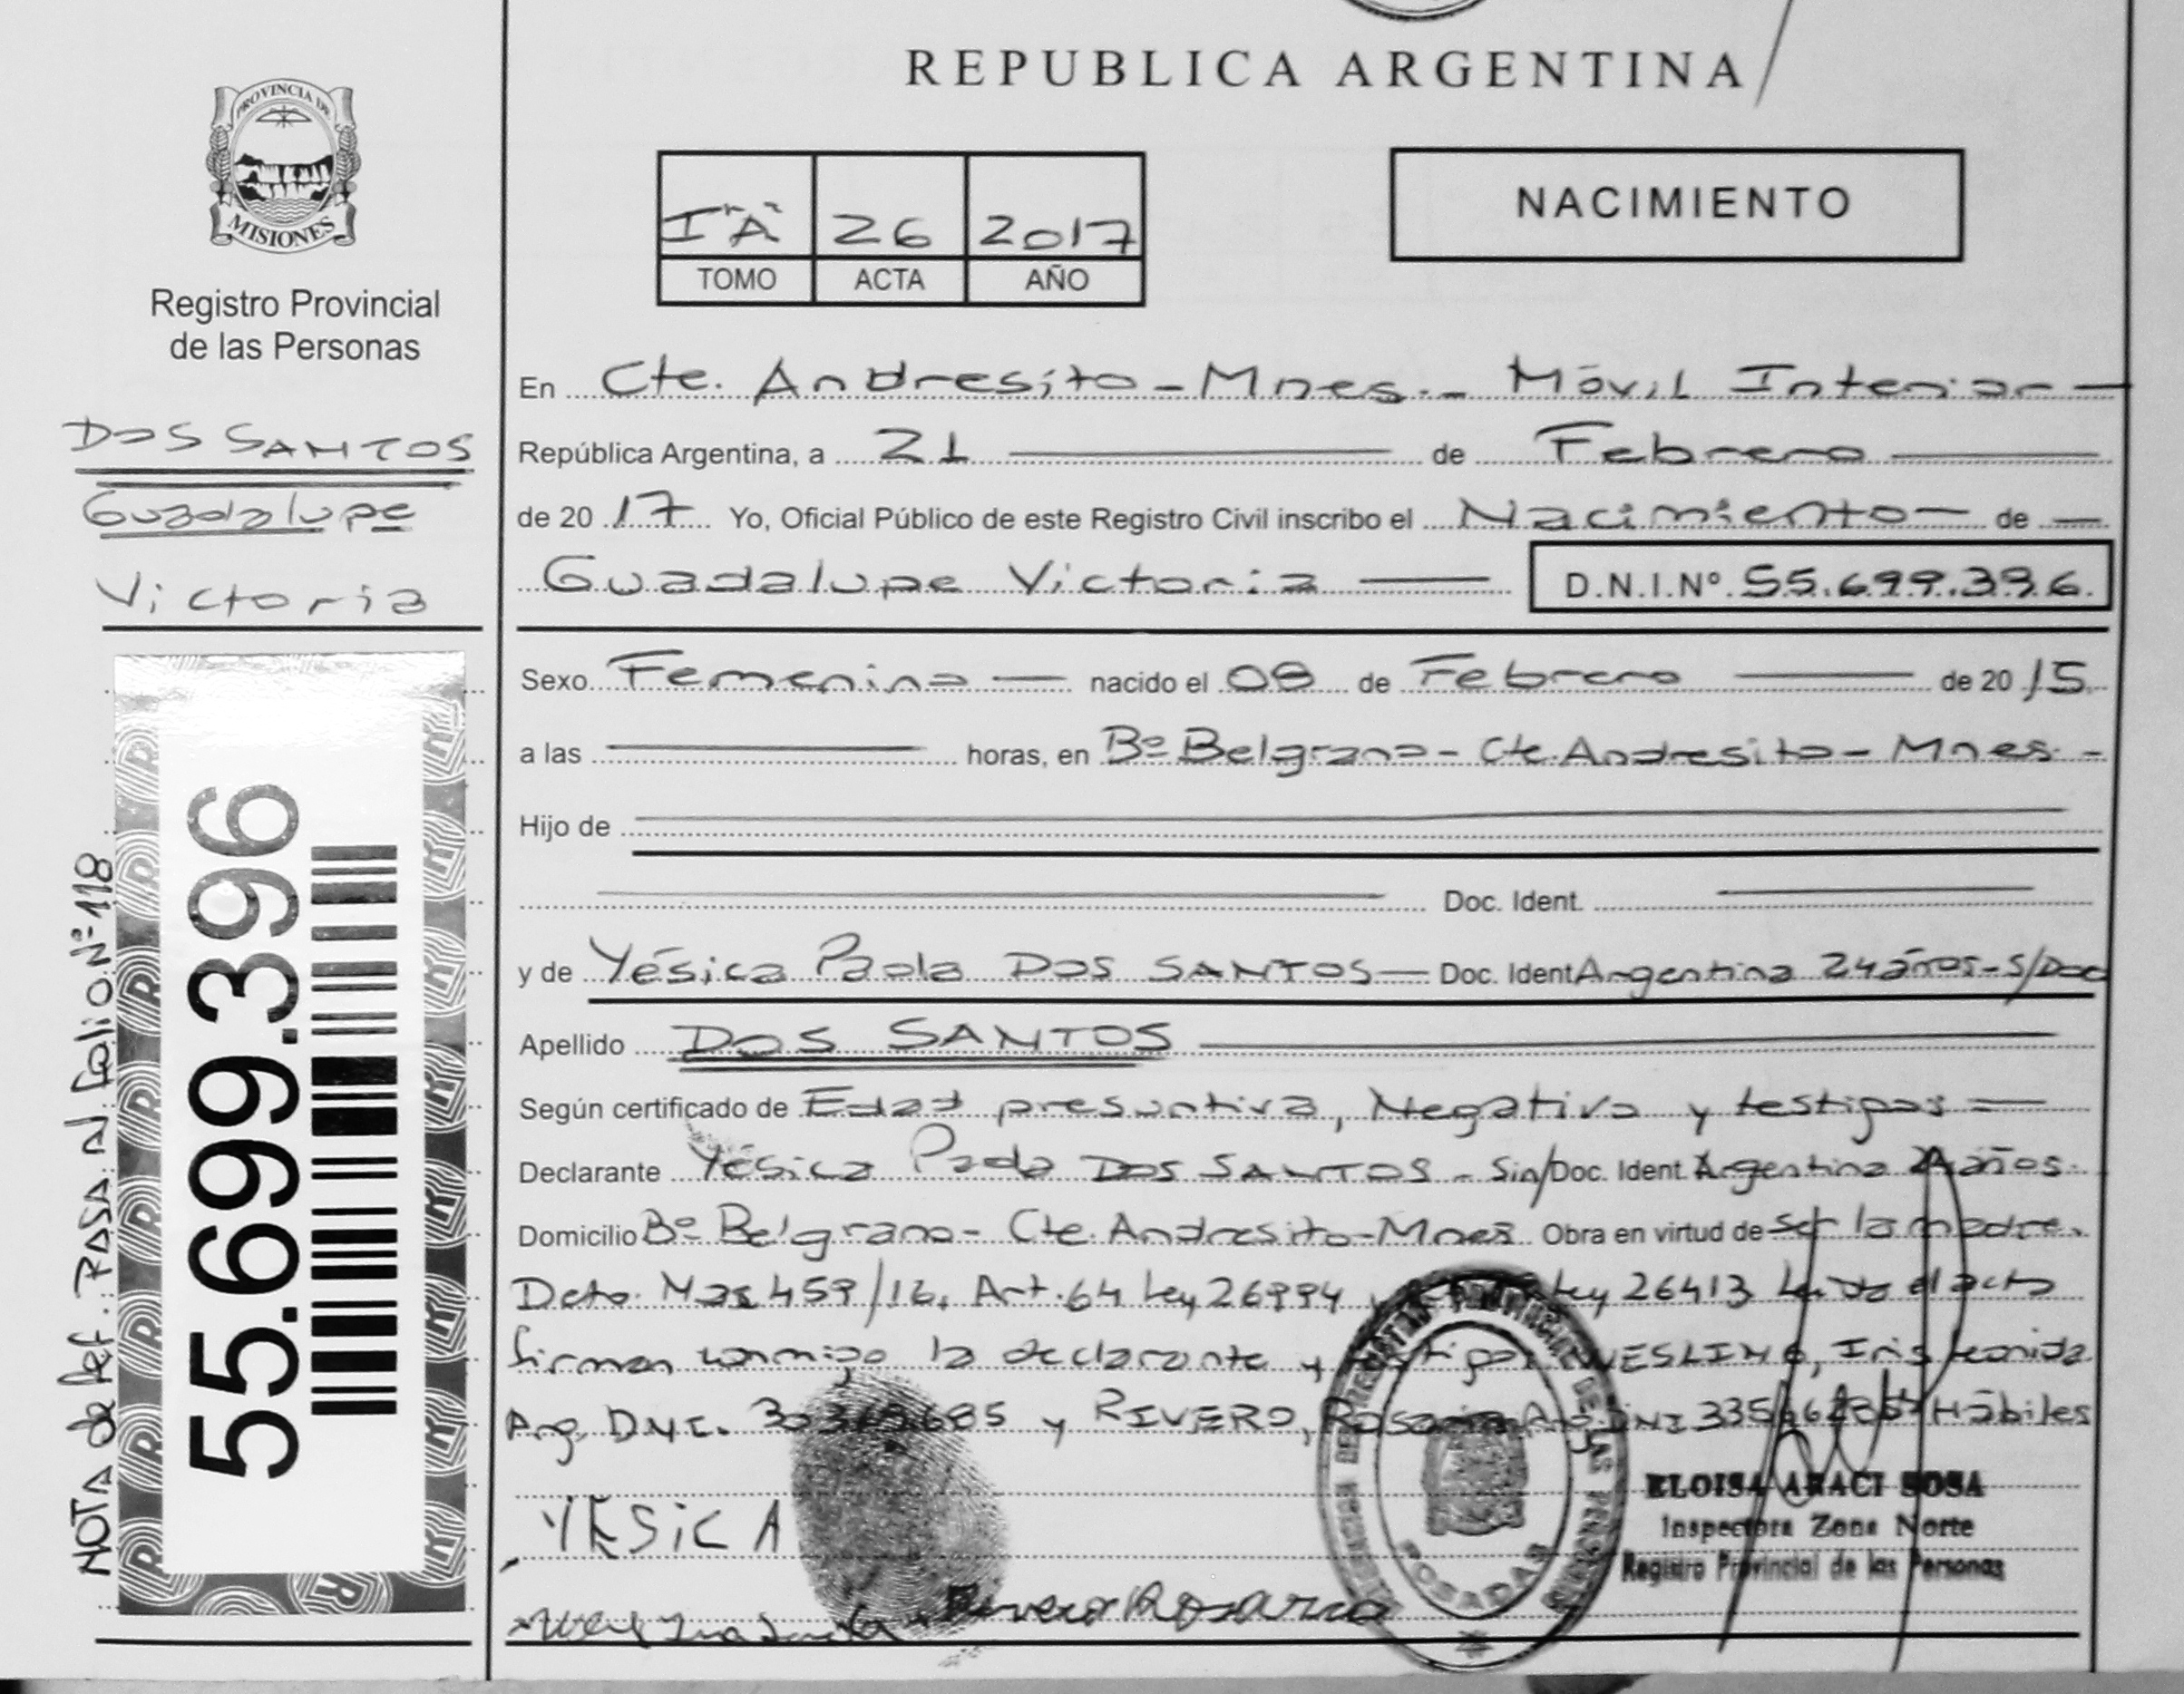 PROVINCIA DE
MISIONES
Registro Provincial
de las Personas
DOS SANTOS
Guadalupe
Victoria
55.699.396
NOTA de Ref. PASA al folio Nº 118
REPUBLICA ARGENTINA
I "A" 26 2017
TOMO ACTA AÑO
NACIMIENTO
En Cte. Andresito - Mnes. - Móvil Interior
República Argentina, a 21 de Febrero
de 2017 Yo, Oficial Público de este Registro Civil inscribo el Nacimiento de
Guadalupe Victoria D.N.I.Nº 55.699.396.
Sexo Femenino nacido el 08 de Febrero de 2015
a las horas, en Bº Belgrano - Cte. Andresito - Mnes. -
Hijo de
Doc. Ident.
y de Yésica Paola DOS SANTOS Doc. Ident Argentina 24 años - S/Doc
Apellido DOS SANTOS
Según certificado de Edad presuntiva, Negativo y testigos
Declarante Yésica Paola DOS SANTOS - Sin/Doc. Ident. Argentina 24 años.
Domicilio Bº Belgrano - Cte. Andresito - Mnes Obra en virtud de ser la madre.
Dcto. Nac 459/16, Art. 64 Ley 26994 Ley 26413 Leida el acta
firman conmigo la declarante y testigos Iris Leonida
Arg. D.N.I. y RIVERO, Rosario Arg. DNI Hábiles
YESICA
Rivero Rosario
POSADAS
ELOISA ARACI SOSA
Inspectora Zona Norte
Registro Provincial de las Personas